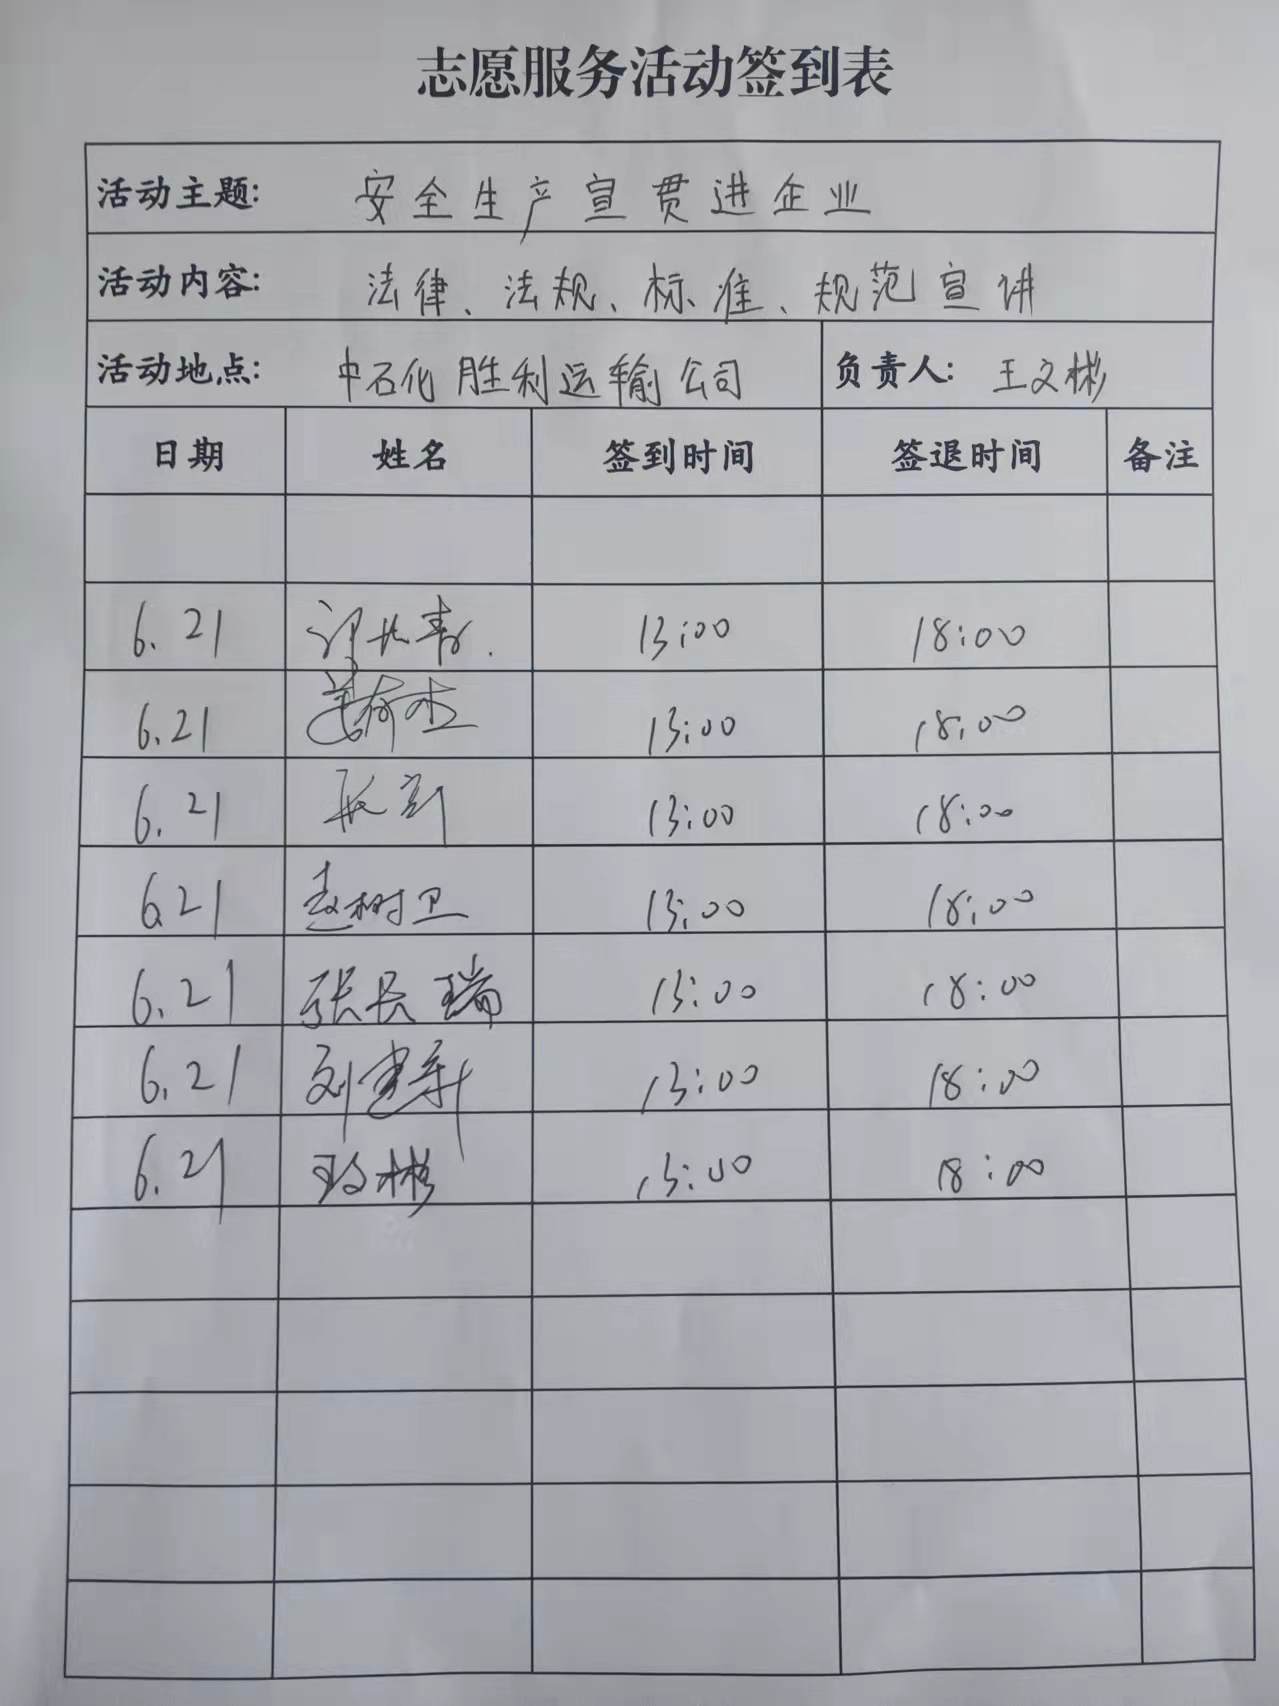 志愿服务活动签到表
活动主题: 安全生产宣贯进企业
活动内容: 法律、法规、标准、规范宣讲
活动地点: 中石化胜利运输公司 负责人: 王文彬
日期 姓名 签到时间 签退时间 备注
6.21 13:00 18:00
6.21 13:00 18:00
6.21 13:00 18:00
6.21 赵树卫 13:00 18:00
6.21 张长瑞 13:00 18:00
6.21 刘建新 13:00 18:00
6.21 王文彬 13:00 18:00